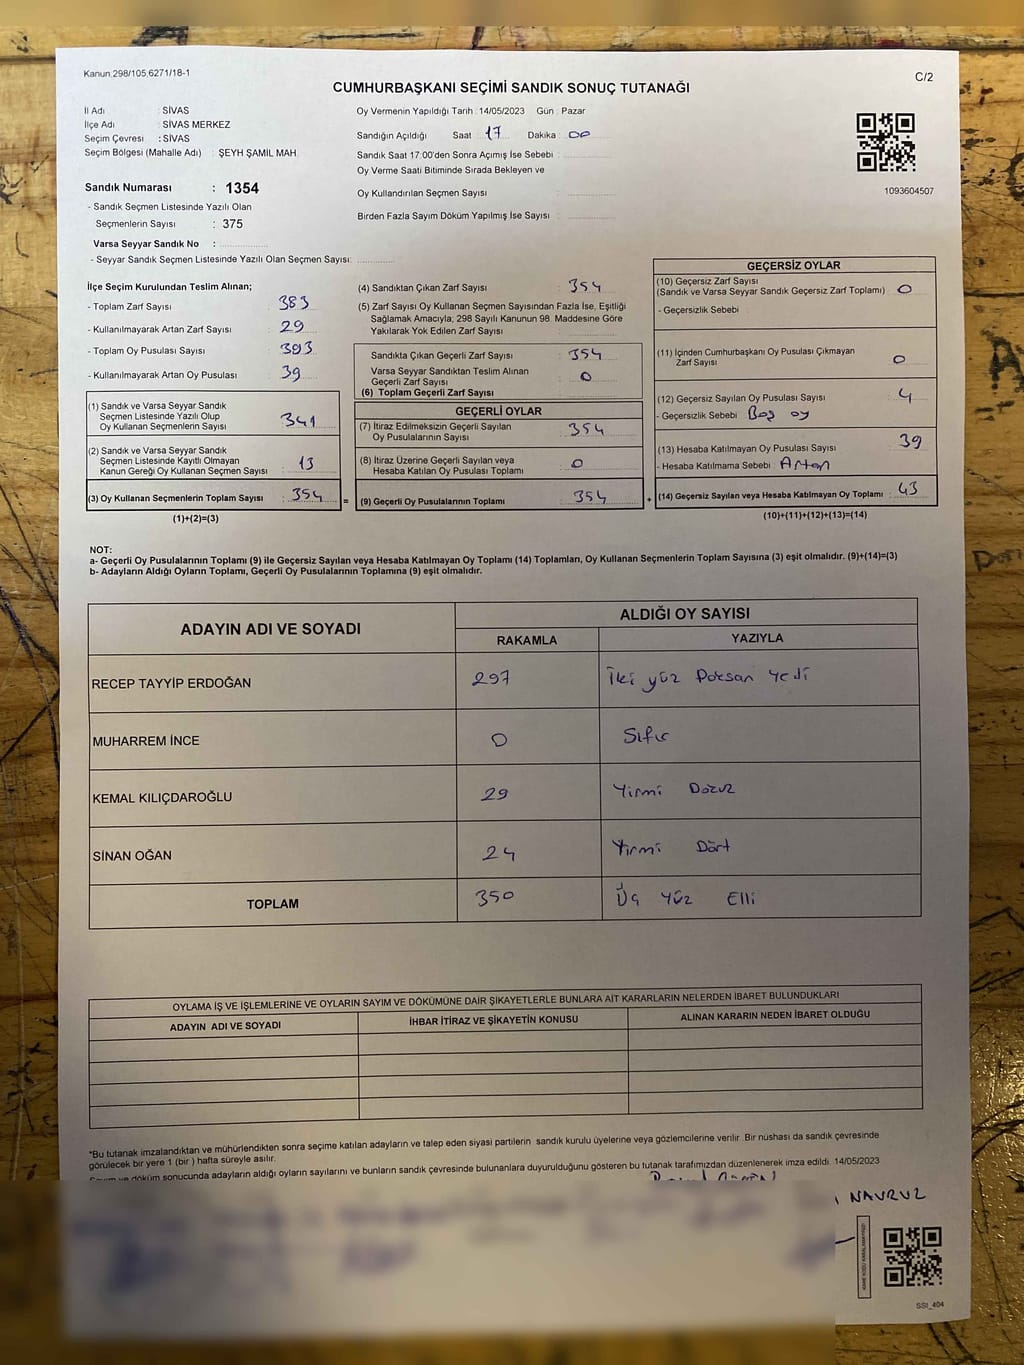 Kanun 298/105,6271/18-1
C/2
CUMHURBAŞKANI SEÇİMİ SANDIK SONUÇ TUTANAĞI
İl Adı : SİVAS
İlçe Adı : SİVAS MERKEZ
Seçim Çevresi : SİVAS
Seçim Bölgesi (Mahalle Adı) : ŞEYH ŞAMİL MAH
Sandık Numarası : 1354
- Sandık Seçmen Listesinde Yazılı Olan
Seçmenlerin Sayısı : 375
Varsa Seyyar Sandık No :
- Seyyar Sandık Seçmen Listesinde Yazılı Olan Seçmen Sayısı:
Oy Vermenin Yapıldığı Tarih : 14/05/2023 Gün : Pazar
Sandığın Açıldığı Saat 17 Dakika : 00
Sandık Saat 17:00'den Sonra Açımış İse Sebebi :
Oy Verme Saati Bitiminde Sırada Bekleyen ve
Oy Kullandırılan Seçmen Sayısı :
Birden Fazla Sayım Döküm Yapılmış İse Sayısı :
1093604507
İlçe Seçim Kurulundan Teslim Alınan;
- Toplam Zarf Sayısı : 383
- Kullanılmayarak Artan Zarf Sayısı : 29
- Toplam Oy Pusulası Sayısı : 393
- Kullanılmayarak Artan Oy Pusulası : 39
(1) Sandık ve Varsa Seyyar Sandık
Seçmen Listesinde Yazılı Olup
Oy Kullanan Seçmenlerin Sayısı : 341
(2) Sandık ve Varsa Seyyar Sandık
Seçmen Listesinde Kayıtlı Olmayan
Kanun Gereği Oy Kullanan Seçmen Sayısı : 13
(3) Oy Kullanan Seçmenlerin Toplam Sayısı : 354 =
(1)+(2)=(3)
(4) Sandıktan Çıkan Zarf Sayısı : 354
(5) Zarf Sayısı Oy Kullanan Seçmen Sayısından Fazla İse, Eşitliği
Sağlamak Amacıyla; 298 Sayılı Kanunun 98. Maddesine Göre
Yakılarak Yok Edilen Zarf Sayısı
Sandıkta Çıkan Geçerli Zarf Sayısı : 354
Varsa Seyyar Sandıktan Teslim Alınan
Geçerli Zarf Sayısı : 0
(6) Toplam Geçerli Zarf Sayısı
GEÇERLİ OYLAR
(7) İtiraz Edilmeksizin Geçerli Sayılan
Oy Pusulalarının Sayısı : 354
(8) İtiraz Üzerine Geçerli Sayılan veya
Hesaba Katılan Oy Pusulaları Toplamı : 0
(9) Geçerli Oy Pusulalarının Toplamı : 354 +
GEÇERSİZ OYLAR
(10) Geçersiz Zarf Sayısı
(Sandık ve Varsa Seyyar Sandık Geçersiz Zarf Toplamı) : 0
- Geçersizlik Sebebi
(11) İçinden Cumhurbaşkanı Oy Pusulası Çıkmayan
Zarf Sayısı 0
(12) Geçersiz Sayılan Oy Pusulası Sayısı : 4
- Geçersizlik Sebebi Boş oy
(13) Hesaba Katılmayan Oy Pusulası Sayısı : 39
- Hesaba Katılmama Sebebi : Artan
(14) Geçersiz Sayılan veya Hesaba Katılmayan Oy Toplamı : 43
(10)+(11)+(12)+(13)=(14)
NOT:
a- Geçerli Oy Pusulalarının Toplamı (9) ile Geçersiz Sayılan veya Hesaba Katılmayan Oy Toplamı (14) Toplamları, Oy Kullanan Seçmenlerin Toplam Sayısına (3) eşit olmalıdır. (9)+(14)=(3)
b- Adayların Aldığı Oyların Toplamı, Geçerli Oy Pusulalarının Toplamına (9) eşit olmalıdır.
ADAYIN ADI VE SOYADI
ALDIĞI OY SAYISI
RAKAMLA YAZIYLA
RECEP TAYYİP ERDOĞAN 297 İki yüz Doksan Yedi
MUHARREM İNCE 0 Sıfır
KEMAL KILIÇDAROĞLU 29 Yirmi Dokuz
SİNAN OĞAN 24 Yirmi Dört
TOPLAM 350 Üç Yüz Elli
OYLAMA İŞ VE İŞLEMLERİNE VE OYLARIN SAYIM VE DÖKÜMÜNE DAİR ŞİKAYETLERLE BUNLARA AİT KARARLARIN NELERDEN İBARET BULUNDUKLARI
ADAYIN ADI VE SOYADI İHBAR İTİRAZ VE ŞİKAYETİN KONUSU ALINAN KARARIN NEDEN İBARET OLDUĞU
*Bu tutanak imzalandıktan ve mühürlendikten sonra seçime katılan adayların ve talep eden siyasi partilerin sandık kurulu üyelerine veya gözlemcilerine verilir .Bir nüshası da sandık çevresinde
görülecek bir yere 1 (bir ) hafta süreyle asılır.
Sayım ve döküm sonucunda adayların aldığı oyların sayılarını ve bunların sandık çevresinde bulunanlara duyurulduğunu gösteren bu tutanak tarafımızdan düzenlenerek imza edildi. 14/05/2023
NAVRUZ
SSI_404